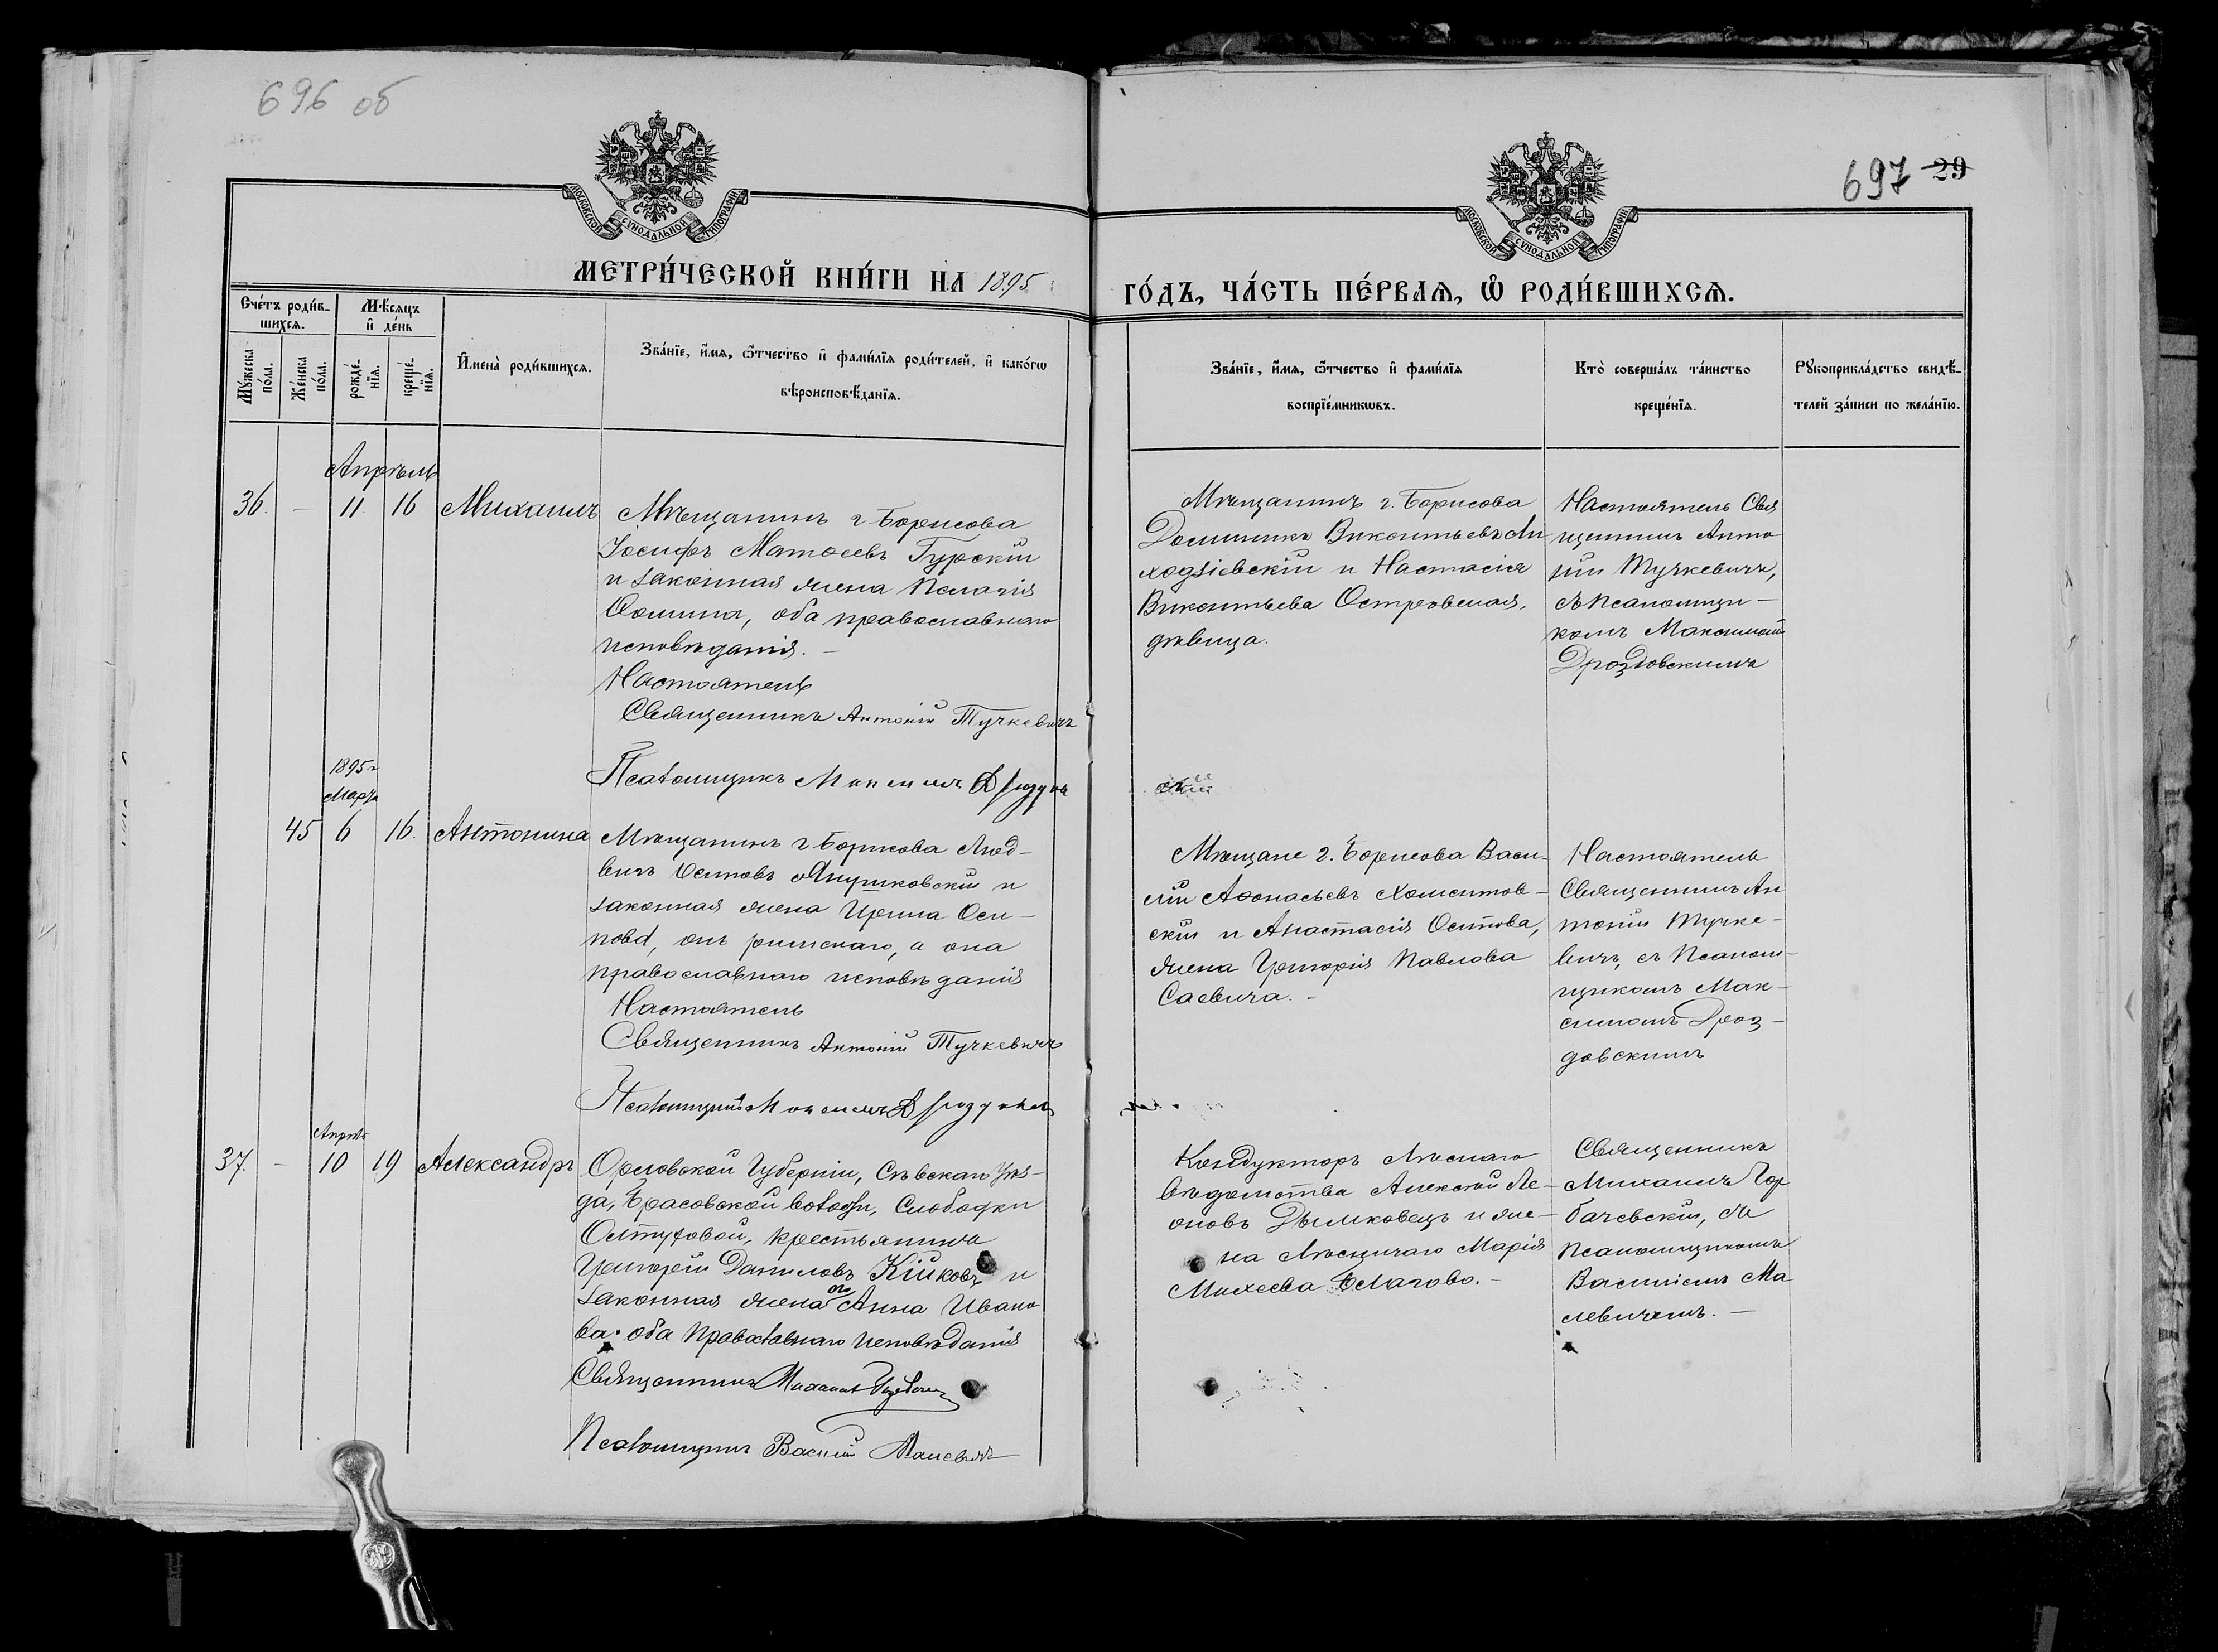 696 об
697 29
МОСКОВСКОЙ СУНОДАЛЬНОЙ ТИПОГРАФІИ
МОСКОВСКОЙ СУНОДАЛЬНОЙ ТИПОГРАФІИ
МЕТРИ́ЧЕСКОЙ КНИ́ГИ НА 1895
ГО́ДЪ, ЧА́СТЬ ПЕ́РВАѦ, Ѡ РОДИ́ВШИХСѦ.
Сче́тъ роди́в-
шихсѧ.
Мѣ́сѧцъ
и де́нь
Му́жеска
по́ла.
Же́нска
по́ла.
рожде́-
нїѧ.
креще́-
нїѧ.
Имена̀ роди́вшихсѧ.
Зва́нїе, и́мѧ, ѻ́тчество и фами́лїѧ роди́телей, и како́гѡ
вѣроисповѣ́данїѧ.
Зва́нїе, и́мѧ, ѻ́тчество и фами́лїѧ
воспрїе́мникѡвъ.
Кто̀ соверша́лъ та́инство
креще́нїѧ.
Рꙋкоприкла́дство свидѣ́-
телей за́писи по жела́нїю.
Апрѣль
36. - 11. 16 Михаилъ
Мѣщанинъ г. Борисова
Іосифъ Матѳеевъ Гурскій
и законная жена Пелагія
Ѳомина, оба православнаго
исповѣданія. -
Настоятель
Священникъ Антоній Тучкевичъ
Псаломщикъ Максимъ Дроздов
скій
Мѣщанинъ г. Борисова
Доминикъ Викентьевъ Ли
ходзіевскій и Настасія
Викентьева Островская,
дѣвица.
Настоятель Свя
щенникъ Анто
ній Тучкевичъ,
съ псаломщи-
комъ Максимомъ
Дроздовскимъ
1895 г
Марта
45 6 16. Антонина
Мѣщанинъ г. Борисова Люд-
вигъ Осиповъ Янушковскій и
законная жена Ирина Оси-
пова, онъ римскаго, а она
православнаго исповѣданія
Настоятель
Священникъ Антоній Тучкевичъ
Псаломщикъ Максимъ Дроздовск
Мѣщане г. Борисова Васи-
лій Аѳонасьевъ Хоментов-
скій и Анастасія Осипова,
жена Григорія Павлова
Саевича. -
Настоятель
Священникъ Ан
тоній Тучке-
вичъ, съ Псалом-
щикомъ Мак-
симомъ Дроз-
довскимъ
Апрѣль
37. - 10 19 Александръ
Орловской Губерніи, Сѣвскаго Уѣз-
да, Брасовской волости, Слободки
крестьянинъ
Григорій Даниловъ и
законная жена его Анна Ивано
ва. оба Православнаго исповѣданія
Священникъ Михаилъ Горбачевскій
Псаломщикъ Василій Малевичъ
Кондукторъ Лѣснаго
вѣдомства Алексѣй Ле-
оновъ Дымковецъ и же-
на Лѣсничаго Марія
Михеева Благово. -
Священникъ
Михаилъ Гор
бачевскій, съ
Псаломщикомъ
Василіемъ Ма
левичемъ. -